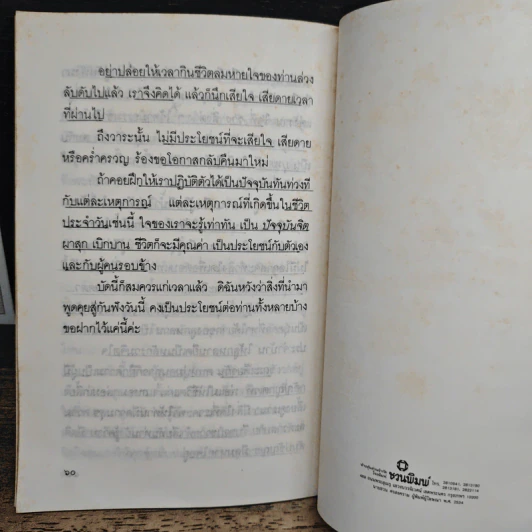 อย่าปล่อยให้เวลากินชีวิตลมหายใจของท่านล่วง
ลับดับไปแล้ว เราจึงคิดได้ แล้วก็นึกเสียใจ เสียดายเวลา
ที่ผ่านไป
ถึงวาระนั้น ไม่มีประโยชน์ที่จะเสียใจ เสียดาย
หรือคร่ำครวญ ร้องขอโอกาสกลับคืนมาใหม่
ถ้าคอยฝึกให้เราปฏิบัติตัวได้เป็นปัจจุบันทันท่วงที
กับแต่ละเหตุการณ์ แต่ละเหตุการณ์ที่เกิดขึ้นในชีวิต
ประจำวันเช่นนี้ ใจของเราจะรู้เท่าทัน เป็น ปัจจุบันจิต
ผาสุก เบิกบาน ชีวิตก็จะมีคุณค่า เป็นประโยชน์กับตัวเอง
และกับผู้คนรอบข้าง
บัดนี้ก็สมควรแก่เวลาแล้ว ดิฉันหวังว่าสิ่งที่นำมา
พูดคุยสู่กันฟังวันนี้ คงเป็นประโยชน์ต่อท่านทั้งหลายบ้าง
ขอฝากไว้แค่นี้ค่ะ
๖๐
ชวนพิมพ์ โทร.